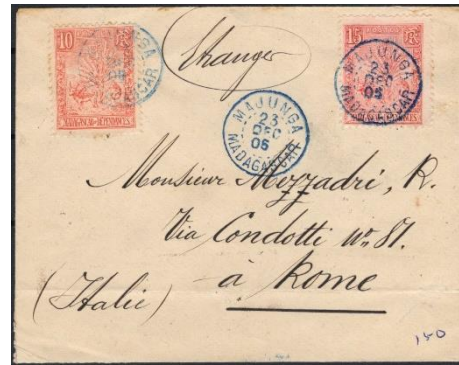 10
MADAGASCAR ET DEPENDANCES
Etranger
15
MAJUNGA
23
DEC
05
MADAGASCAR
MAJUNGA
23
DEC
05
MADAGASCAR
Monsieur Mozzadri, R.
Via Condotti nº 81.
à Rome
(Italie)
150